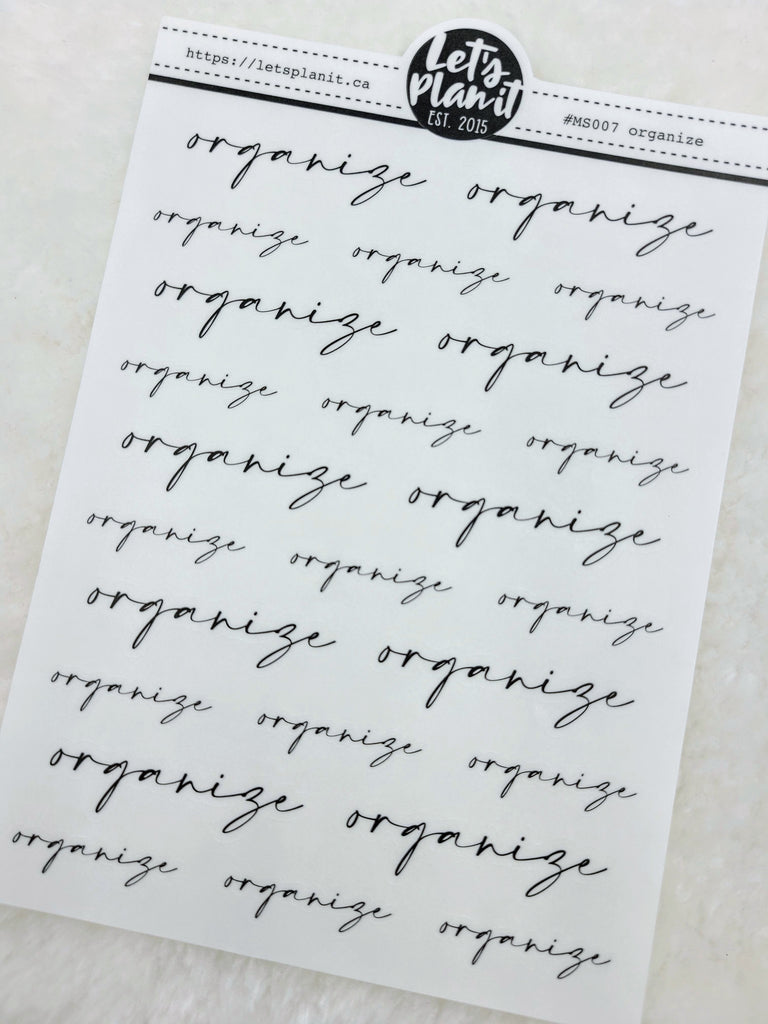 https://letsplanit.ca
Let's
Plan it
EST. 2015
#MS007 organize
organize organize
organize organize organize
organize organize
organize organize organize
organize organize
organize organize organize
organize organize
organize organize organize
organize organize
organize organize organize